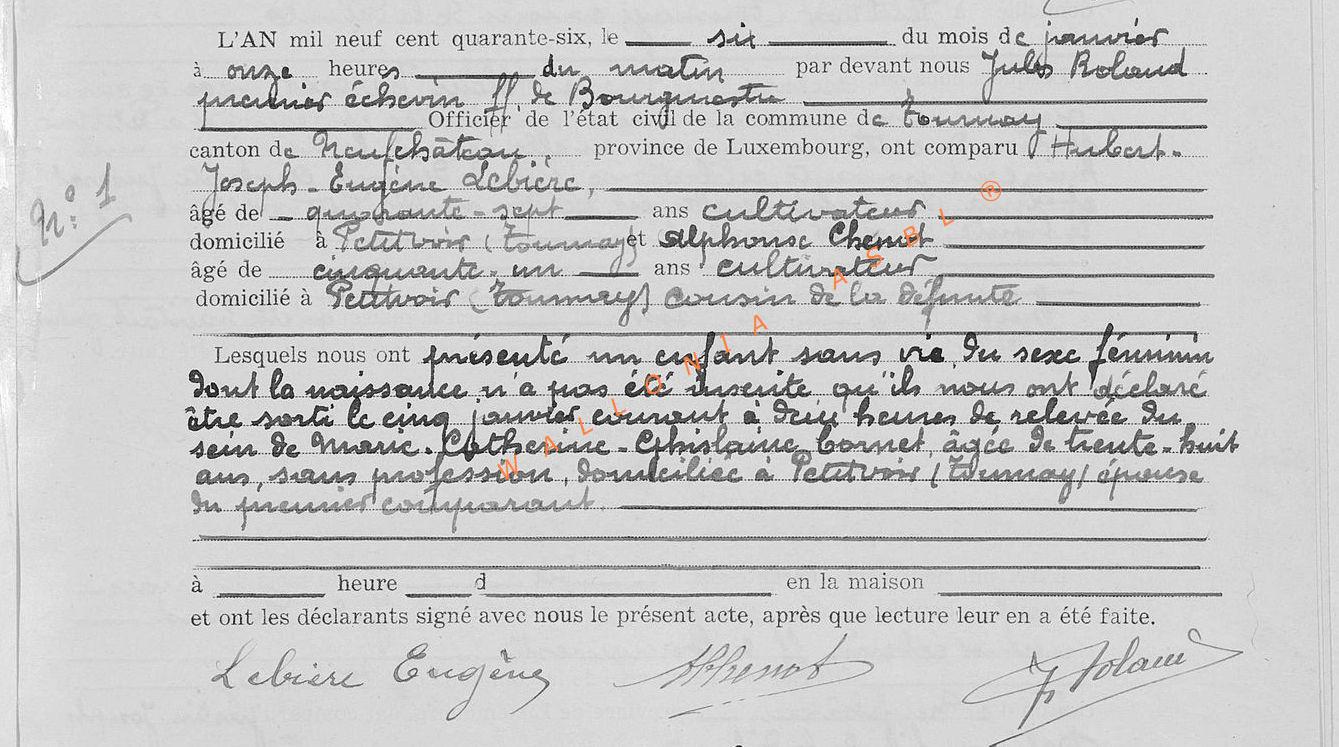 L'AN mil neuf cent quarante-six, le six du mois de janvier
à onze heures du matin par devant nous Jules Roland
premier échevin ff. de Bourgmestre
Officier de l'état civil de la commune de Tournay
canton de Neufchâteau, province de Luxembourg, ont comparu Hubert-
Joseph-Eugène Lebière,
âgé de quarante-sept ans cultivateur
domicilié à Petitvoir (Tournay) et Alphonse Chenot
âgé de cinquante-un ans cultivateur
domicilié à Petitvoir (Tournay) cousin de la défunte
Lesquels nous ont présenté un enfant sans vie du sexe féminin
dont la naissance n'a pas été inscrite qu'ils nous ont déclaré
être sorti le cinq janvier courant à deux heures de relevée du
sein de Marie-Catherine-Ghislaine Cornet, âgée de trente-huit
ans, sans profession, domiciliée à Petitvoir (Tournay) épouse
du premier comparant.
à heure d en la maison
et ont les déclarants signé avec nous le présent acte, après que lecture leur en a été faite.
Lebière Eugène AChenot J Roland
N° 1
WALLONIA ASBL ®